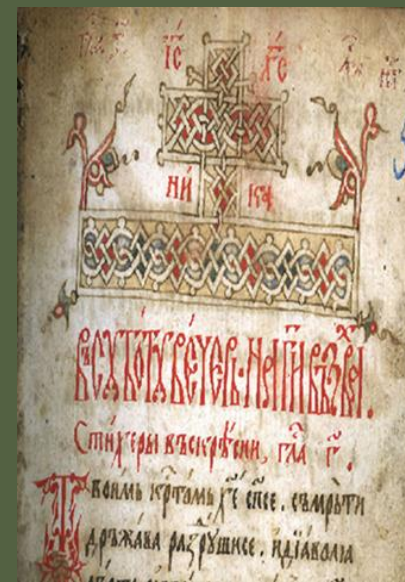 І҃С Х҃С
НИ КА
ВСꙊБѠТꙊВЕЧЕРЬ·НАГ҃ИВЪЗВА.
Стих҃еры въскрⷭ҇ѣсни, гла҃ г҃.
Твоимь крⷭ҇томь х҃е сп҃се. съмрьти
дръжава разрꙋшисе. идїавола